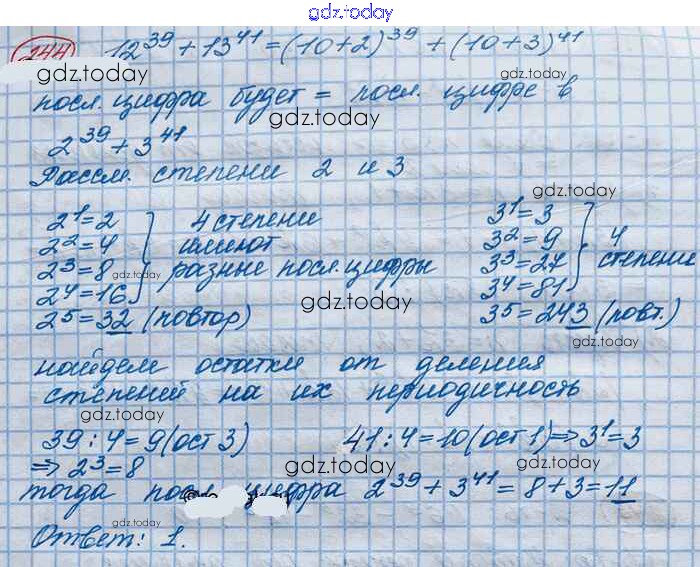 gdz.today
144 12³⁹ + 13⁴¹ = (10+2)³⁹ + (10+3)⁴¹
gdz.today
gdz.today
посл. цифра будет = посл. цифре в
gdz.today
2³⁹ + 3⁴¹
Рассм. степени 2 и 3
gdz.today
2¹ = 2
2² = 4
2³ = 8
2⁴ = 16
4 степени
имеют
разные посл. цифры
gdz.today
2⁵ = 32 (повтор)
3¹ = 3
3² = 9
3³ = 27
3⁴ = 81
4
степени
3⁵ = 243 (повт.)
gdz.today
найдем остатки от деления
степений на их периодичность
gdz.today
gdz.today
39 : 4 = 9 (ост 3)
⇒ 2³ = 8
41 : 4 = 10 (ост 1) ⇒ 3¹ = 3
gdz.today
gdz.today
тогда посл. цифра 2³⁹ + 3⁴¹ = 8 + 3 = 11
gdz.today
gdz.today
Ответ: 1.